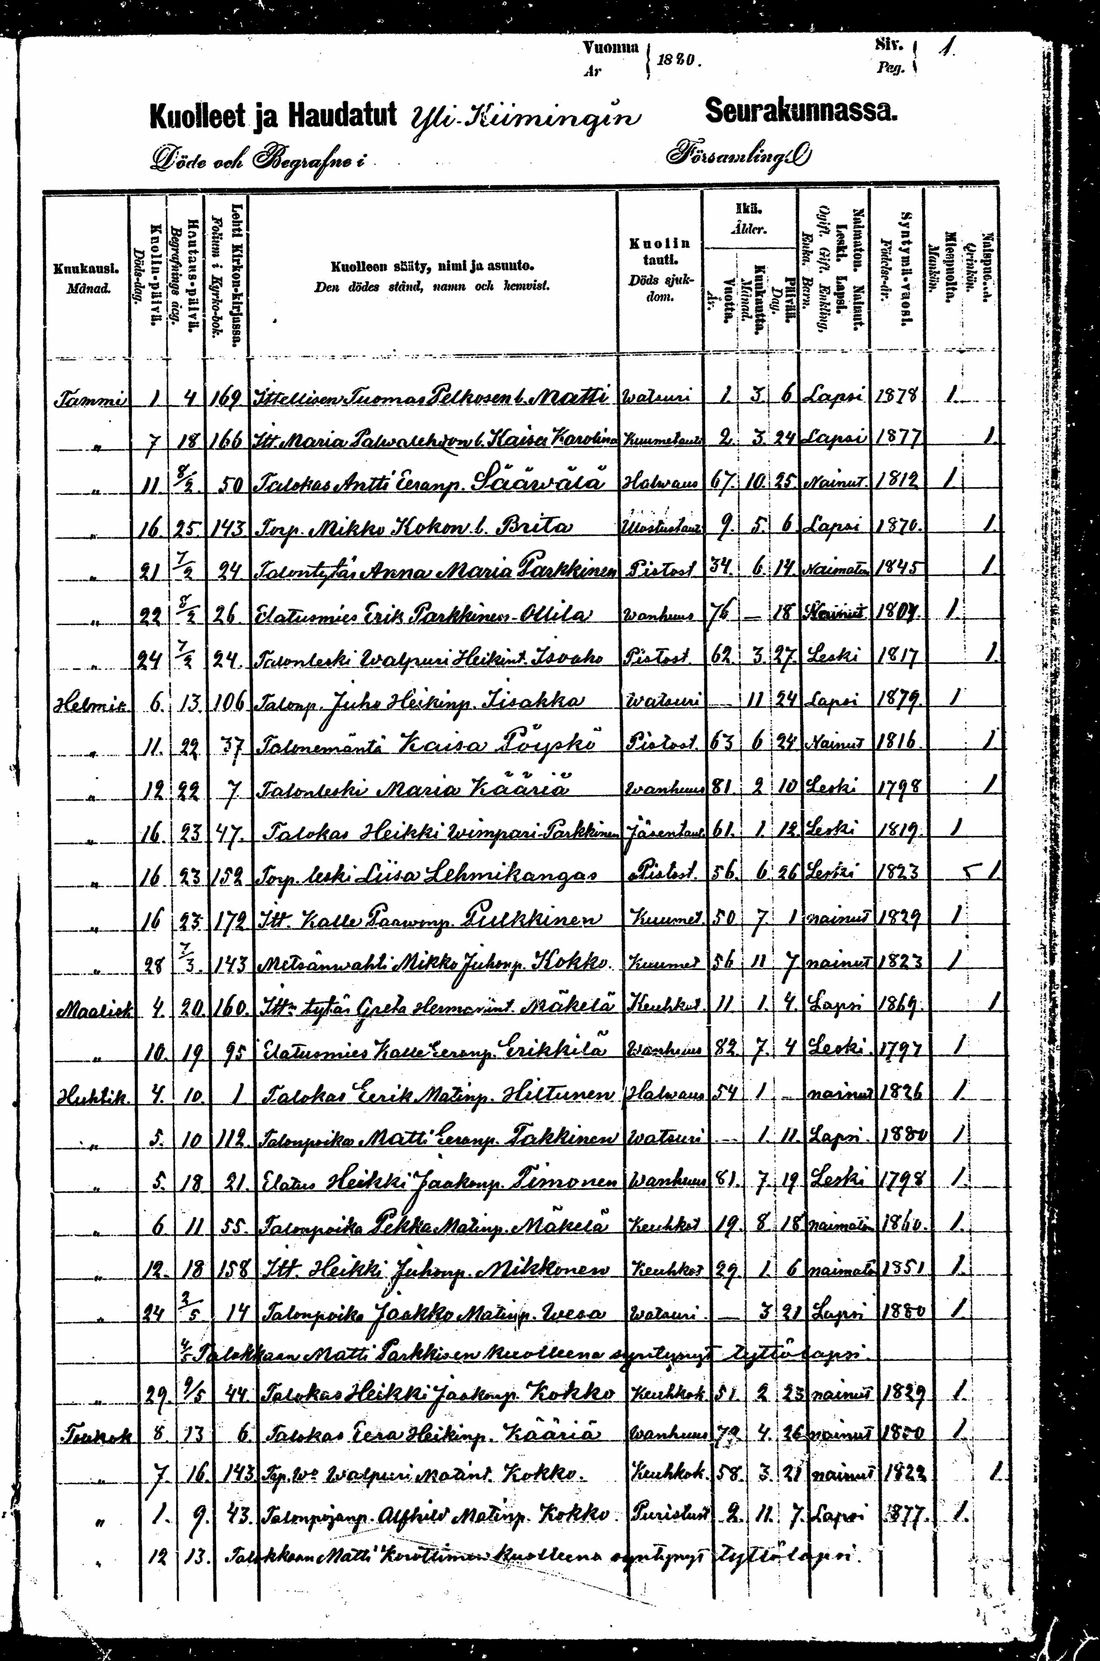 Vuonna 1880. Siv. 1.
År Pag.
Kuolleet ja Haudatut Yli-Kiimingin Seurakunnassa.
Döde och Begrafne i Församling
Kuukausi. Månad.
Kuolin-päivä. Döds-dag.
Hautaus-päivä. Begrafnings dag.
Lehti Kirkon-kirjassa. Folium i Kyrko-bok.
Kuolleen sääty, nimi ja asunto. Den dödes stånd, namn och hemvist.
Kuolin tauti. Döds sjukdom.
Ikä. Ålder.
Vuotta. År.
Kuukautta. Månad.
Päivää. Dag.
Naimaton. Nainut. Leski. Lapsi. Ogift. Gift. Enkling. Enka. Barn.
Syntymä-vuosi. Födelse-år.
Miespuolta. Mankön.
Naispuolta. Qvinkön.
Tammi 1 4 169 Ittellisen Tuomas Pelkosen l. Matti Watsuri 1 3 6 Lapsi 1878 1.
" 7 18 166 Itt. Maria l. Kaisa Karolina Kuumetauti 2. 3 24 Lapsi 1877 1.
" 11. 8/2 50 Talokas Antti Eeranp. Sääwälä Halwaus 67. 10. 25 Nainut 1812 1
" 16. 25. 143 Torp. Mikko Kokon l. Brita 9. 5. 6 Lapsi 1870. 1.
" 21 7/2 24 Talontytär Anna Maria Parkkinen Pistost 34. 6. 14. Naimaton 1845 1
" 22 8/2 26. Elatusmies Erik Parkkinen-Ollila Wanhuus 76 — 18 Nainut 1804. 1.
" 24 7/2 24. Talonleski Walpuri Heikint. Isoaho Pistost. 62 3. 27. Leski 1817 1.
Helmik. 6. 13. 106 Talonp. Juho Heikinp. Iisakka Watsuri — 11 24 Lapsi 1879. 1
" 11. 22 37 Talonemäntä Kaisa Pöyskö Pistost. 63 6 24 Nainut 1816. 1
" 12 22 7 Talonleski Maria Kääriä Wanhuus 81. 2 10 Leski 1798 1
" 16. 23 47. Talokas Heikki Wimpari-Parkkinen Jäsentaut 61. 1. 12. Leski 1819. 1
" 16 23 152 Torp. leski Liisa Lehmikangas Pistost. 56. 6 26 Leski 1823 1
" 16 23 172 Itt. Kalle Paawonp. Pulkkinen Kuumet. 50 7 1 nainut 1829 1
" 28 7/3. 143 Metsänwahti Mikko Juhonp. Kokko. Kuumet 56 11 7 nainut 1823 1
Maalisk 4. 20. 160. Itt: tytär Greta Hermanint. Mäkelä Keuhkot. 11 1. 4 Lapsi 1869. 1
" 10. 19 95 Elatusmies Kalle Eeranp. Erikkilä Wanhuus 82. 7. 4 Leski. 1797 1
Huhtik. 4. 10. 1 Talokas Eerik Matinp. Hiltunen Halwaus 54 1 — nainut 1826 1.
" 5. 10 112. Talonpoika Matti Eeranp. Takkinen Watsuri — 1. 11. Lapsi. 1880 1.
" 5. 18. 21. Elatus Heikki Jaakonp. Timonen Wanhuus 81. 7. 19 Leski 1798 1.
" 6 11 55. Talonpoika Pekka Matinp. Mäkelä Keuhkot 19. 8. 18 naimatoin 1860. 1.
" 12. 18 158 Itt. Heikki Juhonp. Mikkonen Keuhkot 29. 1. 6 naimato 1851 1.
" 24 2/5 14 Talonpoika Jaakko Matinp. Wesa Watsuri. — 3 21 Lapsi 1880 1.
4/5 Talokkaan Matti Parkkisen kuolleena syntynyt tyttölapsi.
" 29. 9/5 44. Talokas Heikki Jaakonp. Kokko Keuhkok. 51. 2 23 nainut 1829 1.
Toukok 8 13 6. Talokas Eera Heikinp. Kääriä Wanhuus 79. 4. 26 nainut 1800 1
" 7 16. 143 Walpuri Matint. Kokko. Keuhkok. 58. 3. 21 nainut 1822 1.
" 1. 9. 43. Talonpojanp. Alfhild Matinp. Kokko. Puristust 2. 11. 7. Lapsi 1877. 1.
" 12 13. Talokkaan Matti kuolleena syntynyt tyttölapsi.